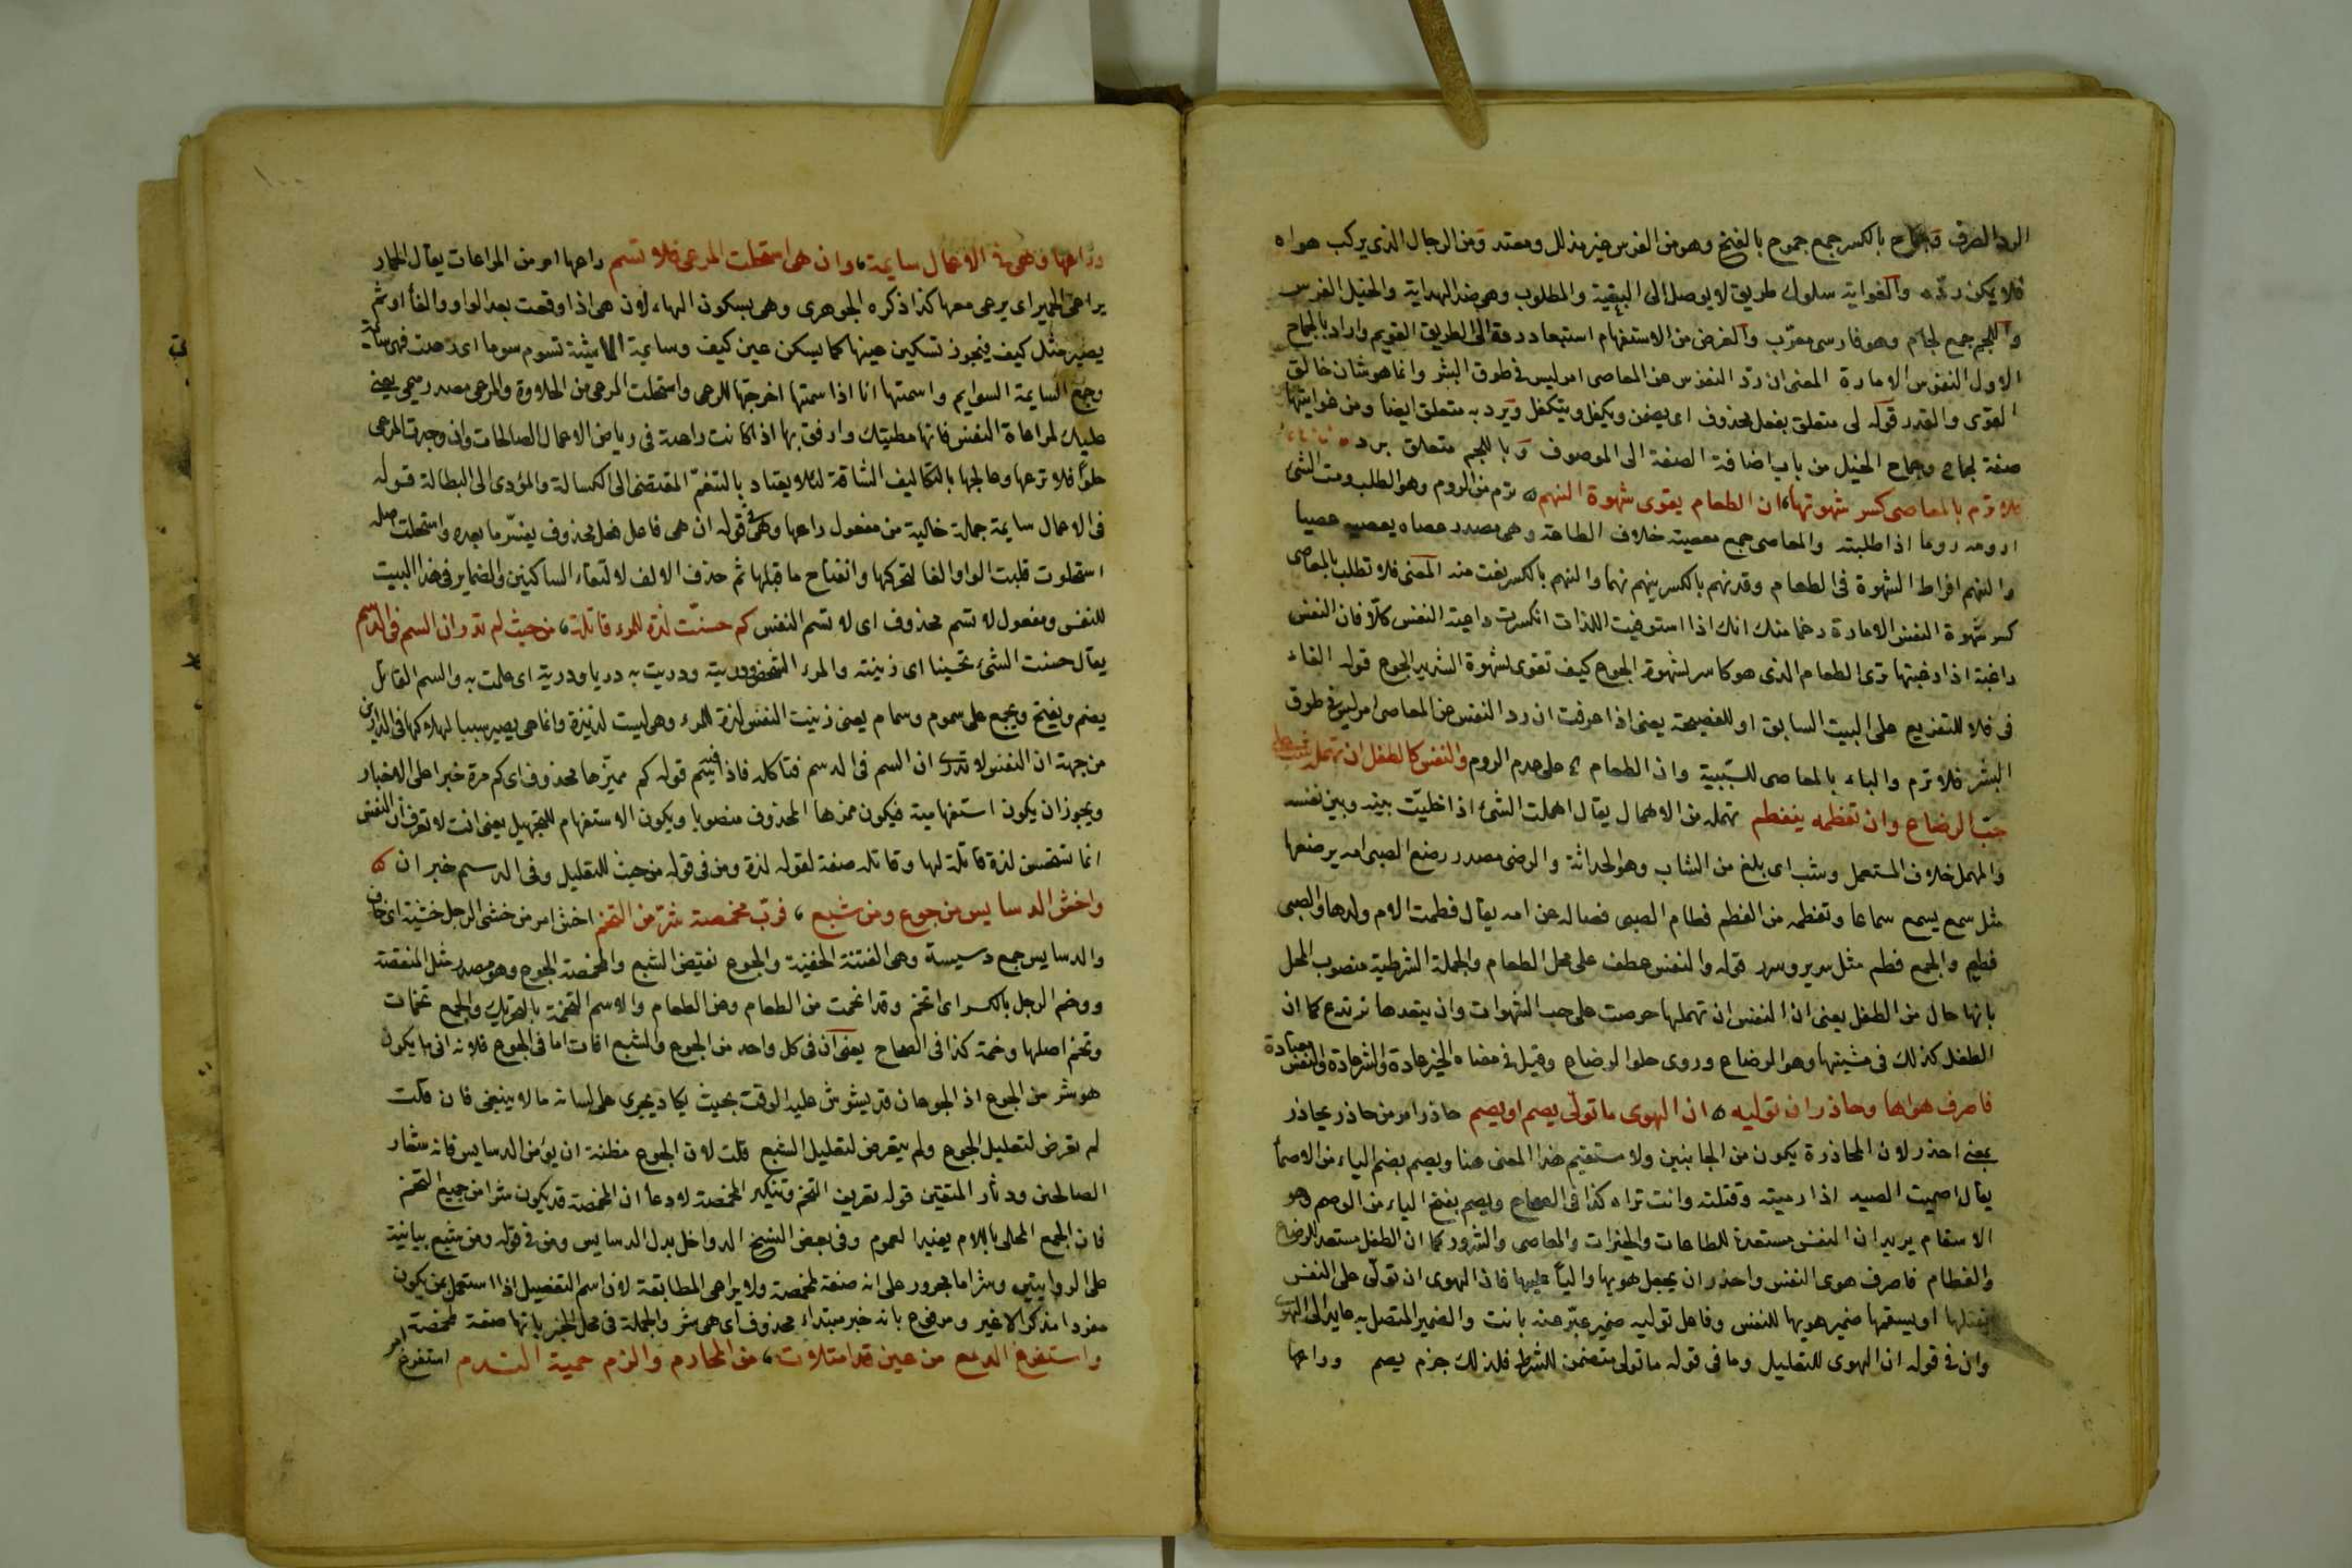 الرد الصرف وجماح بالكسر جمع جموح بالفتح وهو من الفرس غير مذلل ومعتد ومن الرجال الذى يركب هواه
فلا يمكن رده والغواية سلوك طريق لا يوصل الى البغية والمطلوب وهو ضد الهداية والخيل الفرس
واللجم جمع لجام وهو فارسى معرّب والغرض من الاستفهام استبعاد رده الى الطريق القويم واراد بالجماح
الاول النفوس الامارة المعنى ان رد النفوس عن المعاصى امر ليس فى طوق البشر وانما هو شان خالق
القوى والقدر قوله لى متعلق بفعل محذوف اى يضمن ويكفل ويتكفل ويرد به متعلق ايضا ومن غوايتها
صفة لجماح وجماح الخيل من باب اضافة الصفة الى الموصوف وباللجم متعلق برد
فلا ترم بالمعاصى كسر شهوتها ان الطعام يقوى شهوة النهم ترم من الروم وهو الطلب ورمت الشئ
ارومه روما اذا طلبته والمعاصى جمع معصية خلاف الطاعة وهى مصدر عصاه يعصيه عصيا
والنهم افراط الشهوة فى الطعام وقد نهم بالكسر ينهم نهما والنهم بالكسر نعت منه المعنى فلا تطلب بالمعاصى
كسر شهوة النفس الامارة زعما منك انك اذا استوفيت اللذات انكسرت داعية النفس كلا فان النفس
راغبة اذا رغبتها ترى الطعام الذى هو كاسر لشهوة الجوع كيف تقوى لشهوة الشديد الجوع قوله الفاء
فى فلا للتفريع على البيت السابق او للفصيحة يعنى اذا عرفت ان رد النفس عن المعاصى امر ليس فى طوق
البشر فلا ترم والباء بالمعاصى للسببية وان الطعام على عدم الروم والنفس كالطفل ان تهمله شب على
حب الرضاع وان تفطمه ينفطم تهمله من الاهمال يقال اهملت الشئ اذا خليت بينه وبين نفسه
والمهمل خلاف المستعمل وشب اى بلغ من الشاب وهو الحداثة والرضى مصدر رضع الصبى امه يرضعها
مثل سمع يسمع سماعا وتفطمه من الفطم فطام الصبى فصاله عن امه يقال فطمت الام ولدها والصبى
فطيم والجمع فطم مثل سرير وسرر قوله والنفس عطف على محل الطعام والجملة الشرطية منصوب المحل
بانها حال من الطفل يعنى ان النفس ان تهملها حرصت على حب الشهوات وان يتعدها ترتدع كما ان
الطفل كذلك فى مشيتها وهو الرضاع وروى حلو الرضاع وقيل فى معناه الخير عادة والشر عادة والنفس معتادة
فاصرف هواها وحاذر ان توليه ان الهوى ما تولّى يصم او يصم حاذر امر من حاذر يحاذر
بمعنى احذر لان المحاذرة يكون من الجانبين ولا مستقيم هذا المعنى هنا ويصم بضم الياء من الاصماء
يقال اصميت الصيد اذا رميته وقتلته وانت تراه كذا فى الصحاح ويصم بفتح الياء من الوصم وهو
الاسقام يريد ان النفس مستعدة للطاعات والخيرات والمعاصى والشرور كما ان الطفل مستعد للرضاع
والفطام فاصرف هوى النفس واحذر ان يجعل هويها واليا عليها فان الهوى ان تولّى على النفس
يقتلها او يسقمها ضمير هويها للنفس وفاعل توليه ضمير عبّر عنه بانت والضمير المتصل به عايد الى الهوى
وان فى قوله ان الهوى للتعليل وما فى قوله ما تولى متضمن للشرط فلذلك جزم يصم وراعها
وراعها وهى فى الاعمال سايمة وان هى استحلت المرعى فلا تسم راعها امر من المراعات يقال الحمار
يراعى الحمير اى يرعى معها كذا ذكره الجوهرى وهى بسكون الهاء لان هى اذا وقعت بعد الواو والفاء او ثم
يصير مثل كيف فيجوز تسكين عينها كما يسكن عين كيف وسايمة الماشية تسوم سوما اى رعت فهى سائمة
وجمع السايمة السوايم واسمتها انا اذا سمتها اخرجتها للرعى واستحلت المرعى من الحلاوة والمرعى مصدر ميمى يعنى
عليك لمراعاة النفس فانها مطيتك وارفق بها اذا كانت راعية فى رياض الاعمال الصالحات وان وجدت المرعى
حلوا فلا ترعها وعالجها بالتكاليف الشاقة لئلا يعتاد بالتنعّم المقتضى الى الكسالة والمؤدى الى البطالة قوله
فى الاعمال سايمة جملة حالية من مفعول راعها وهى فى قوله ان هى فاعل فعل محذوف يفسّر ما بعده واستحلت اصله
استحلوت قلبت الواو الفا لتحركها وانفتاح ما قبلها ثم حذف الالف لالتقاء الساكنين والضماير فى هذا البيت
للنفس ومفعول لا تسم محذوف اى لا تسم النفس كم حسنت لذة للمرء قاتلة من حيث لم تدر ان السم فى الدسم
يقال حسنت الشئ تحسينا اى زينته والمرء الشخص ودريته ودريت به دريا ودرية اى علمت به والسم القاتل
يضم ويفتح ويجمع على سموم وسمام يعنى زينت النفس لذة للمرء وهى ليست لذيذة وانما هى يصير سببا لهلاكها فى الدارين
من جهة ان النفس لا تدرى ان السم فى الدسم فتاكله فاذا قوله كم مميّزها محذوف اى كم مرة خبرا على الاخبار
ويجوز ان يكون استفهامية فيكون مميزها المحذوف منصوبا ويكون الاستفهام للتجهيل يعنى انت لا تعرف ان النفس
انما لذة قاتلة لها وقاتلة صفة لقوله لذة ومن فى قوله من حيث للتعليل وفى الدسم خبر ان
واخش الدسايس من جوع ومن شبع فربّ مخمصة شرّ من التخم اخش امر من خشى الرجل خشية اى خاف
والدسايس جمع دسيسة وهى الفتنة الخفية والجوع نقيض الشبع والمخمصة الجوع وهو مصدر مثل المنقصة
ووخم الرجل بالكسر اى اتخم وقد اتخمت من الطعام وعن الطعام والاسم التخمة بالتحريك والجمع تخمات
وتخم اصلها وخمة كذا فى الصحاح يعنى ان فى كل واحد من الجوع والشبع افات اما فى الجوع فلانه انما يكون
هو شر من الجوع اذ الجوعان قد يشوش عليه الوقت بحيث يكاد يجرى على لسانه ما لا ينبغى فان قلت
لم تعرض لتعليل الجوع ولم يتعرض لتعليل الشبع قلت لان الجوع مظنة ان يؤمن الدسايس فانه شعار
الصالحين ودثار المتقين قوله تعريف التخم وتنكير المخمصة لادعاء ان المخمصة قد يكون شرا من جميع التخم
فان الجمع المحلى باللام يفيد العموم وفى بعض النسخ الدواخل بدل الدسايس ومن فى قوله ومن شبع بيانية
على الروايتين وشر اما مجرور على انه صفة لمخمصة ولا يراعى المطابقة لان اسم التفضيل اذا استعمل بمن يكون
مفردا مذكرا لا غير ومرفوع بانه خبر مبتداء محذوف اى هى شر والجملة فى محل الجر بانها صفة لمخمصة
واستفرغ الدمع من عين قد امتلات من المحارم والزم حمية الندم استفرغ امر